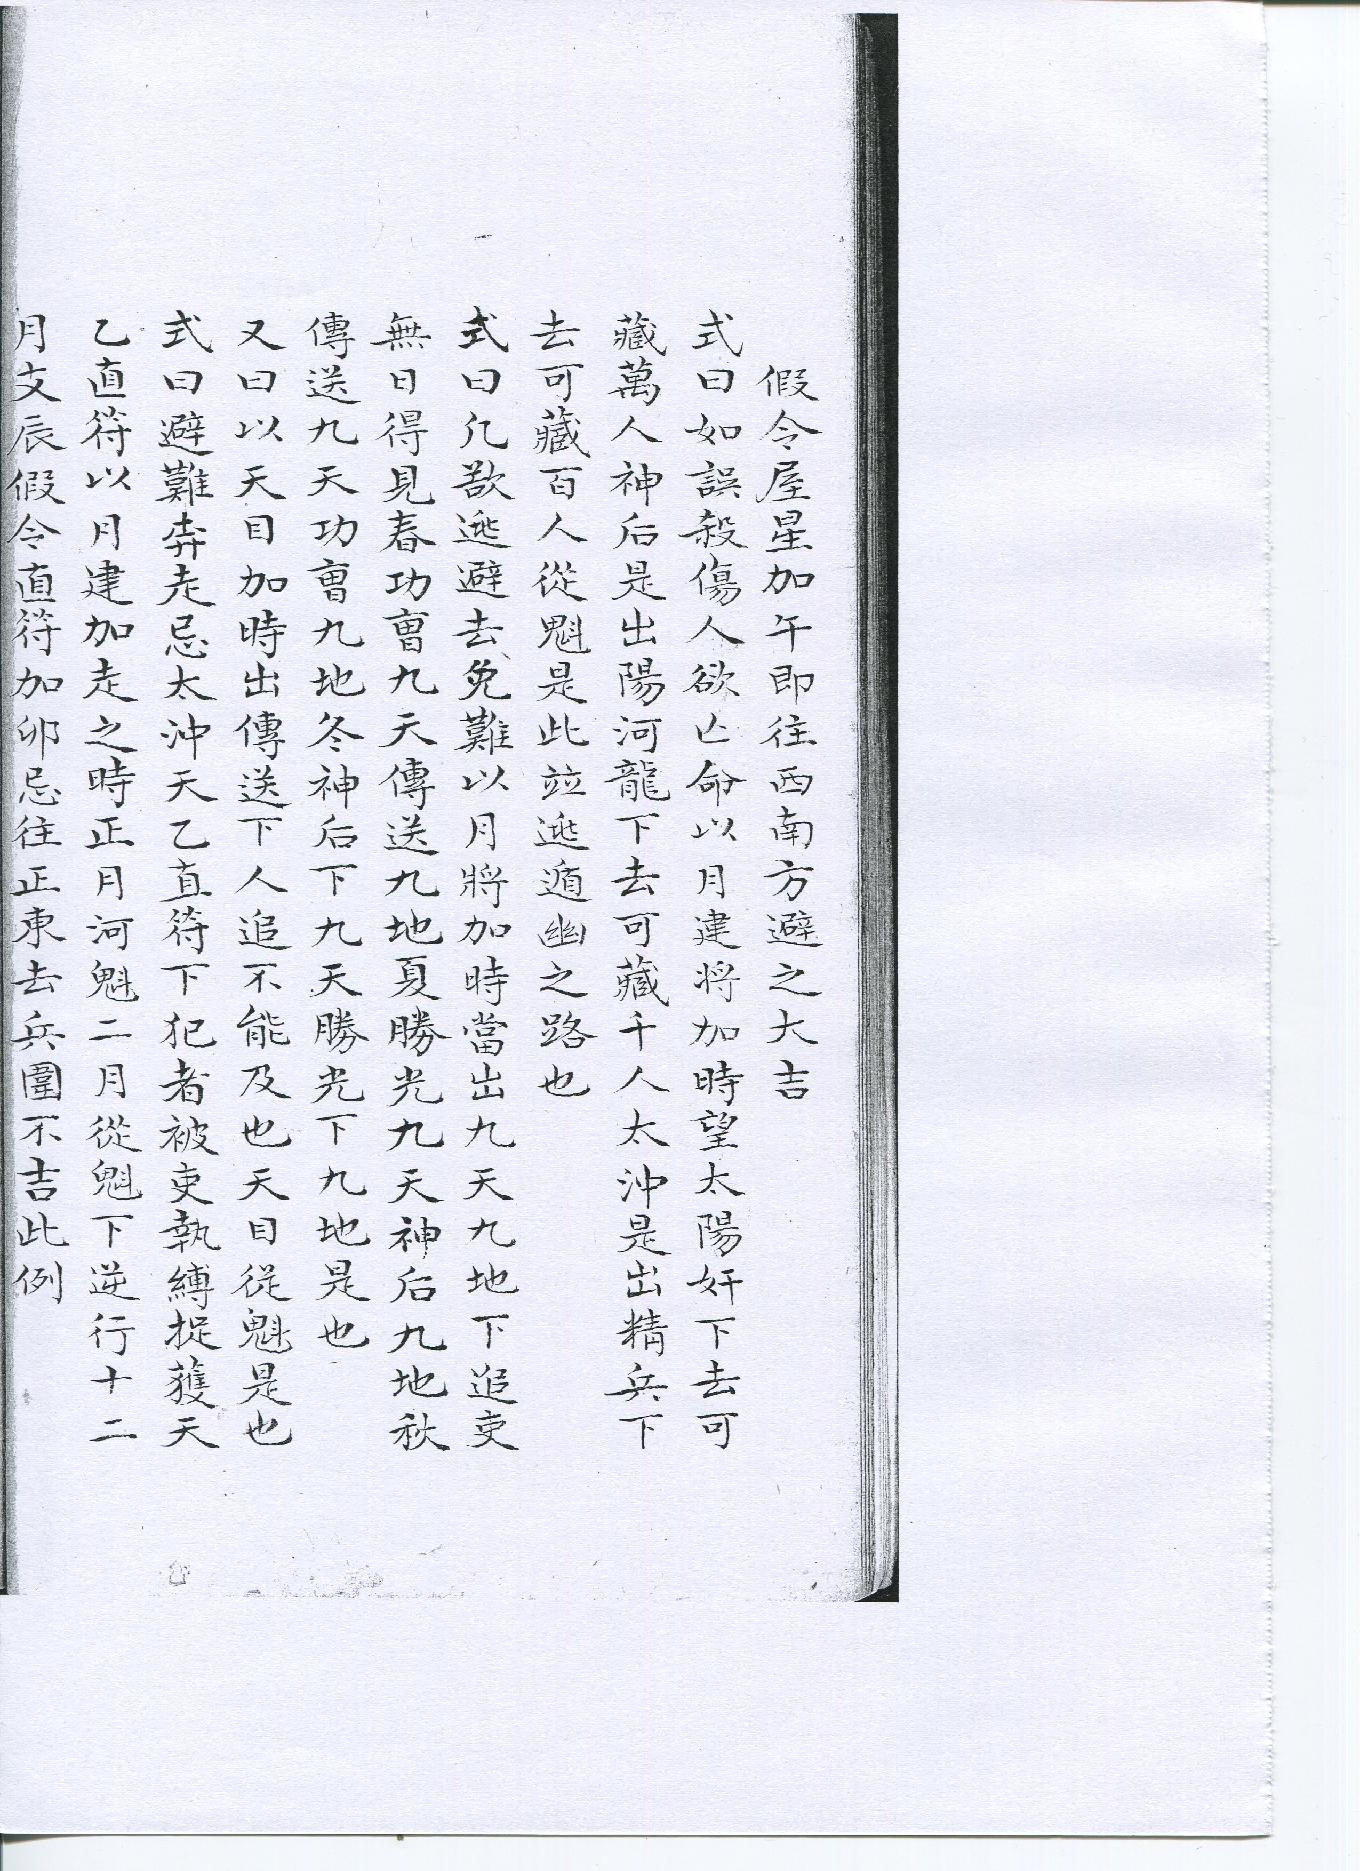 假令屋星加午即往西南方避之大吉
式曰如誤殺傷人欲亡命以月建将加時望太陽奸下去可
藏萬人神后是出陽河龍下去可藏千人太沖是出精兵下
去可藏百人從魁是此竝逃遁幽之路也
式曰凡欲逃避去免難以月將加時當出九天九地下追吏
無日得見春功曹九天傳送九地夏勝光九天神后九地秋
傳送九天功曹九地冬神后下九天勝光下九地是也
又曰以天目加時出傳送下人追不能及也天目從魁是也
式曰避難奔走忌太沖天乙直符下犯者被吏執縛捉獲天
乙直符以月建加走之時正月河魁二月從魁下逆行十二
月文辰假令直符加卯忌往正東去兵圍不吉此例